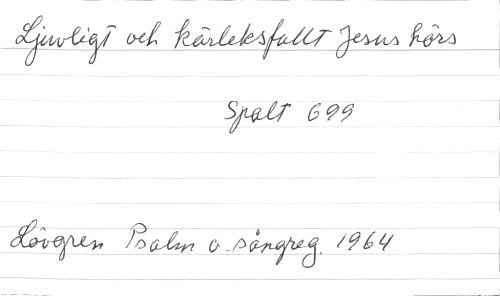 Ljuvligt och kärleksfullt Jesus hörs
Spalt 699
Lövgren Psalm o. sångreg. 1964